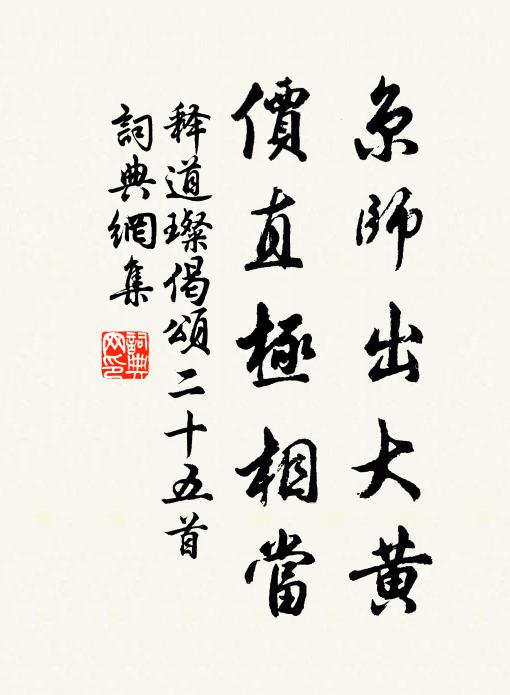 京師出大黄
價直極相當
释道璨偈頌二十五首
詞典網集
詞典網印